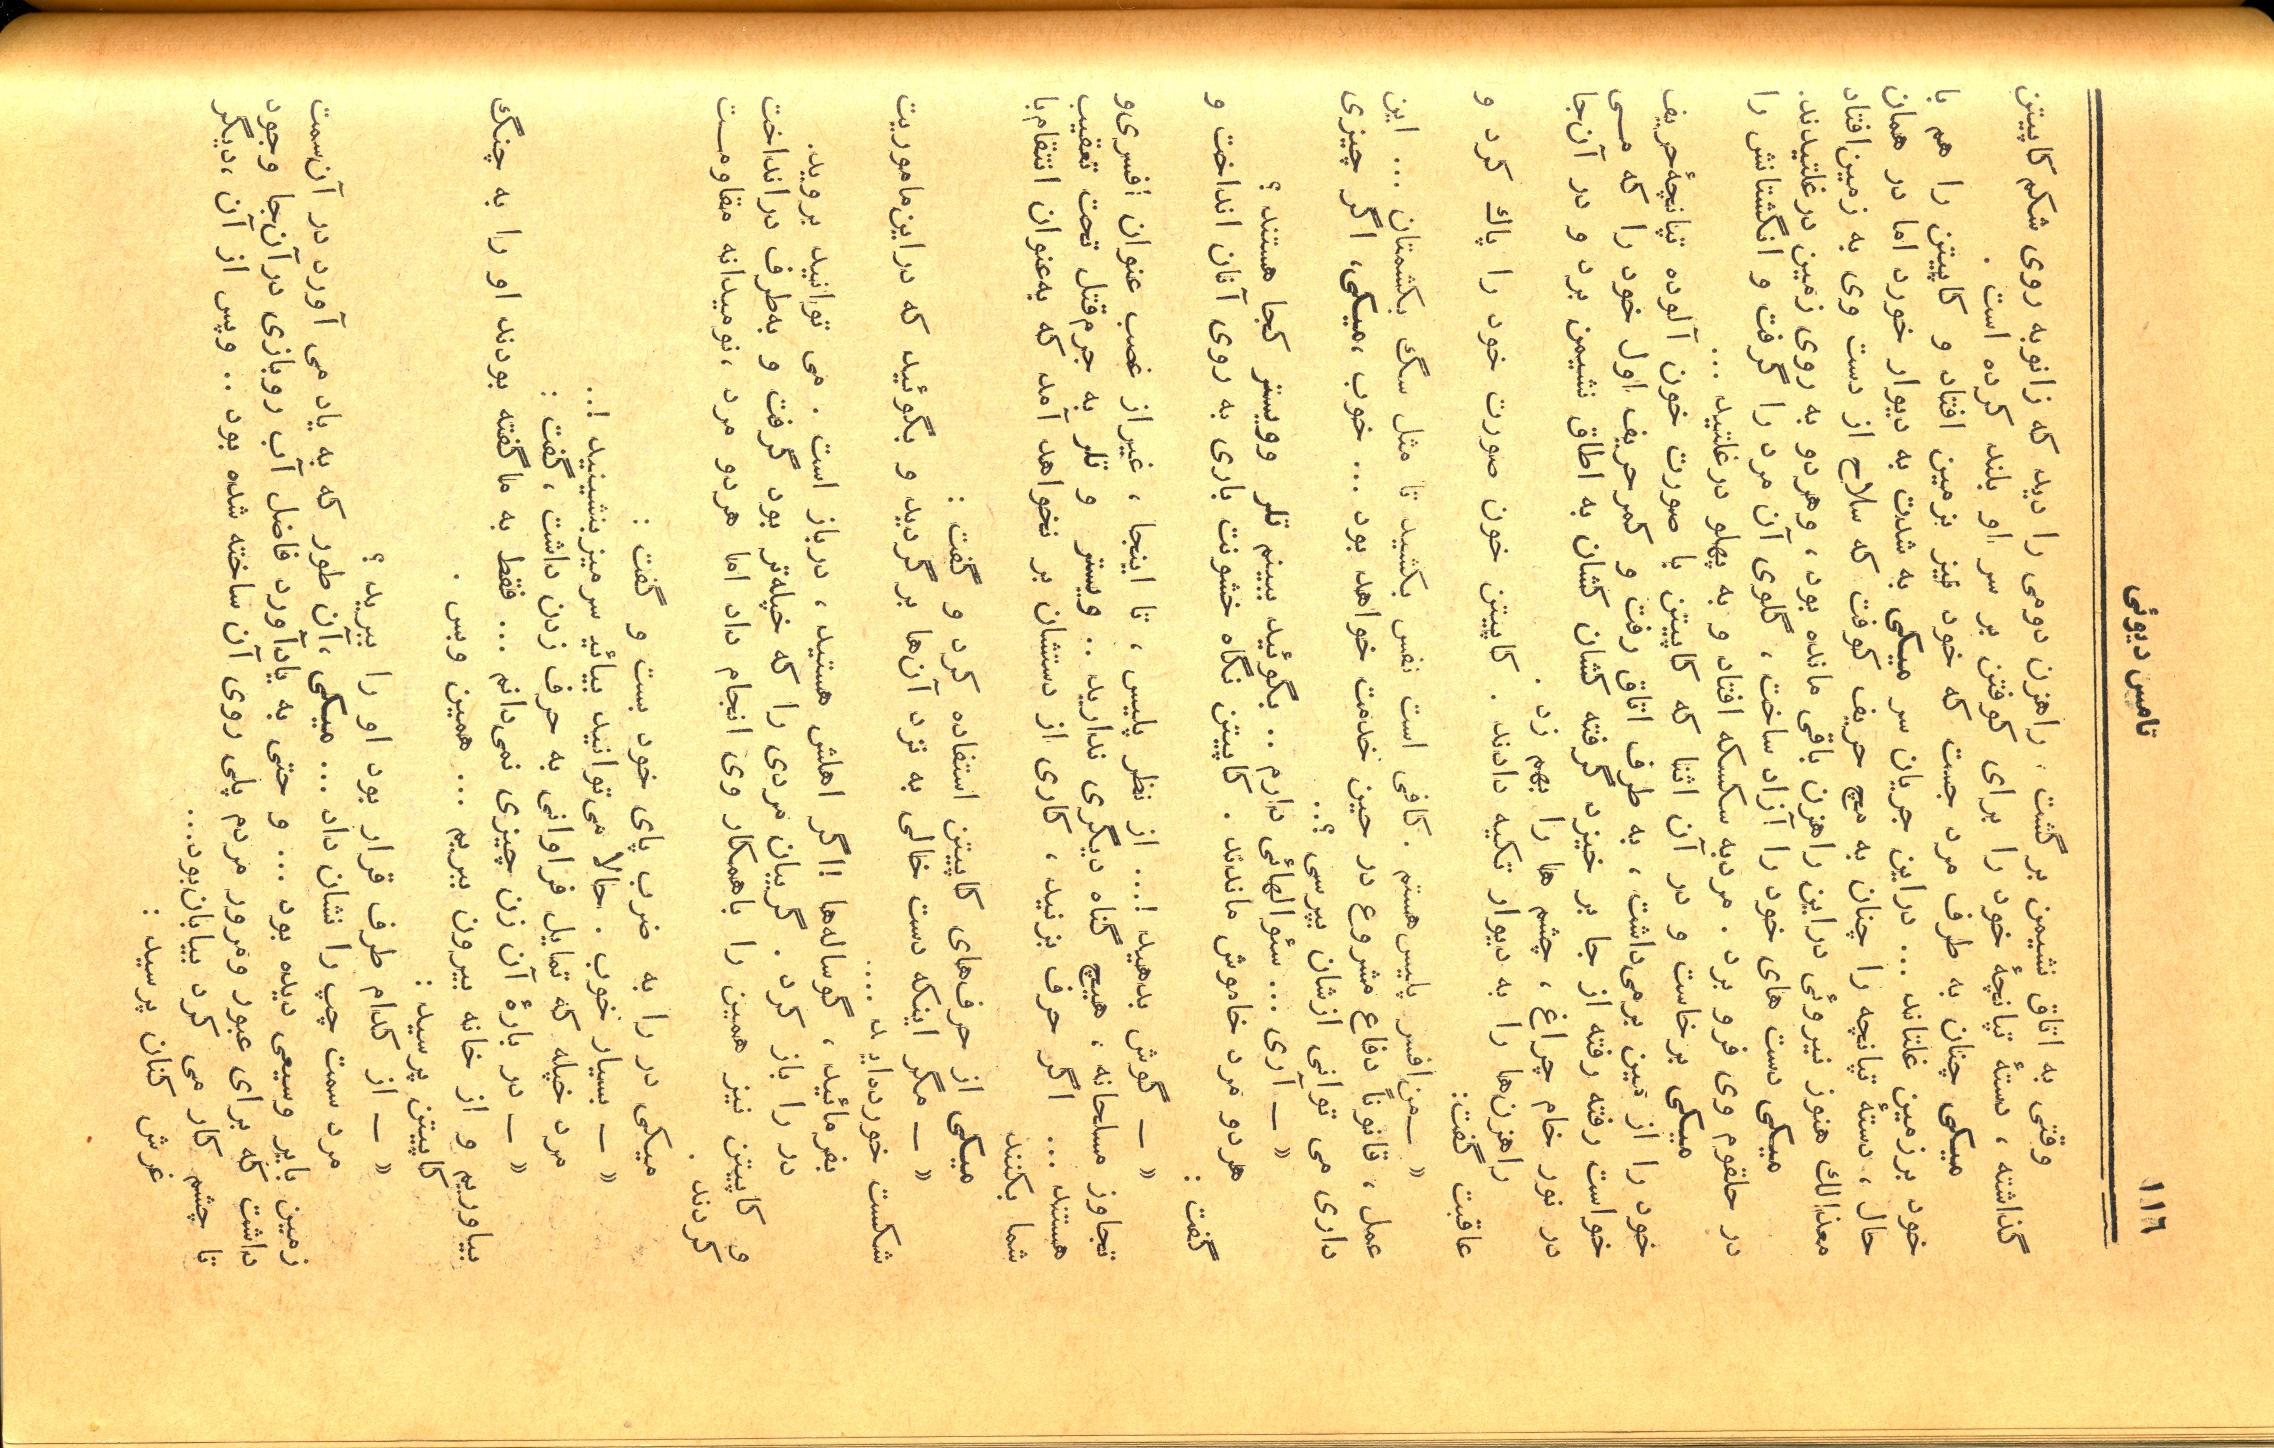 ۱۱۶
تامس دیوئی
وقتی به اتاق نشیمن برگشت ، راهزن دومی را دید که زانوبه روی شکم کاپیتن
گذاشته ، دستهٔ تپانچهٔ خود را برای کوفتن بر سر او بلند کرده است .
میکی چنان به طرف مرد جست که خود نیز بزمین افتاد و کاپیتن را هم با
خود برزمین غلتاند ... دراین جریان سر میکی به شدت به دیوار خورد اما در همان
حال ، دستهٔ تپانچه را چنان به مچ حریف کوفت که سلاح از دست وی به زمین‌افتاد
معذالك هنوز نیروئی دراین راهزن باقی مانده بود ، وهردو به روی زمین درغلتیدند.
میکی دست های خود را آزاد ساخت ، گلوی آن مرد را گرفت و انگشتانش را
در حلقوم وی فرو برد . مردبه سکسکه افتاد و به پهلو درغلتید ...
میکی برخاست و در آن اثنا که کاپیتن با صورت خون آلوده تپانچهٔحریف
خود را از زمین برمی‌داشت ، به طرف اتاق رفت و کمرحریف اول خود را که مـی
خواست رفته رفته از جا بر خیزد گرفته کشان کشان به اطاق نشیمن برد و در آن‌جا
در نور خام چراغ ، چشم ها را بهم زد .
راهزن‌ها را به دیوار تکیه دادند . کاپیتن خون صورت خود را پاك کرد و
عاقبت گفت:
« ـ من‌افسر پلیس‌هستم . کافی است نفس بکشید تا مثل سگ بکشمتان ... این
عمل ، قانوناً دفاع مشروع در حین خدمت خواهد بود ... خوب ،میکی، اگر چیزی
داری می توانی ازشان بپرسی ؟..
« ـ آری ... سئوالهائی دارم .. بگوئید ببینم تلر وویستر کجا هستند ؟
هردو مرد خاموش ماندند . کاپیتن نگاه خشونت باری به روی آنان انداخت و
گفت :
« ـ گوش بدهید !... از نظر پلیس ، تا اینجا ، غیراز غصب عنوان افسری‌و
تجاوز مسلحانه ، هیچ گناه دیگری ندارید .. ویستر و تلر به جرم‌قتل تحت تعقیب
هستند ... اگر حرف بزنید ، کاری از دستشان بر نخواهد آمد که به‌عنوان انتقام‌با
شما بکنند
میکی از حرف‌های کاپیتن استفاده کرد و گفت :
« ـ مگر اینکه دست خالی به نزد آن‌ها بر گردید و بگوئید که دراین‌ماموریت
شکست خورده‌اید ....
بفرمائید ، گوساله‌ها !اگر اهلش هستید ، درباز است . می توانید بروید.
در را باز کرد . گریبان مردی را که خپله‌تر بود گرفت و به‌طرف درانداخت
و کاپیتن نیز همین را باهمکار وی انجام داد اما هردو مرد ،نومیدانه مقاومـت
کردند .
میکی در را به ضرب پای خود بست و گفت :
« ـ بسیار خوب . حالا می‌توانید بیائید سرمیزبنشینید !..
مرد خپله که تمایل فراوانی به حرف زدن داشت ، گفت :
« ـ در بارهٔ آن زن چیزی نمی‌دانم ... فقط به ماگفته بودند او را به چنگ
بیاوریم و از خانه بیرون ببریم ... همین وبس .
کاپیتن پرسید :
« ـ از کدام طرف قرار بود او را ببرید ؟
مرد سمت چپ را نشان داد ... میکی ،آن طور که به یاد می آورد در آن‌سمت
زمین بایر وسیعی دیده بود ... و حتی به یادآورد فاضل آب روبازی درآن‌جا وجود
داشت که برای عبور ومرور مردم پلی روی آن ساخته شده بود .. وپس از آن ،دیگر
تا چشم کار می کرد بیابان‌بود...
غرش کنان پرسید :